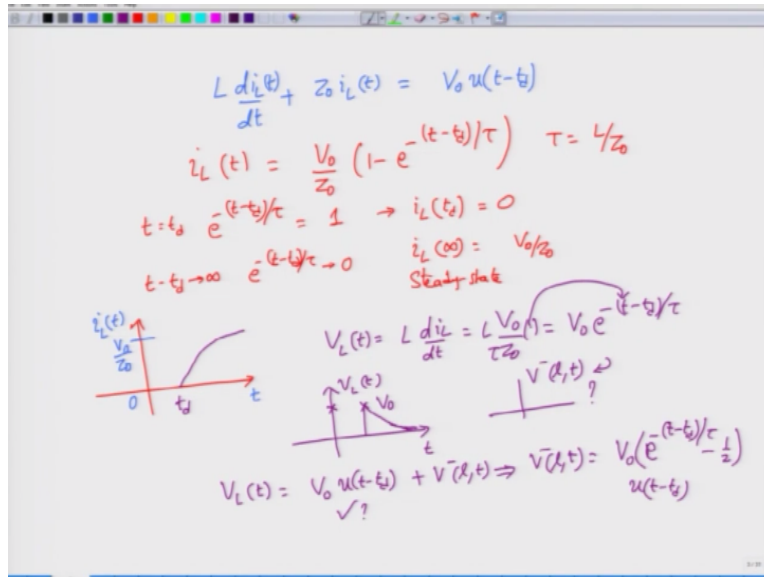 L di_L(t)/dt + Z₀ i_L(t) = V₀ u(t-t_d)
i_L(t) = V₀/Z₀ (1 - e^{-(t-t_d)/τ}) τ = L/Z₀
t=t_d e^{-(t-t_d)/τ} = 1 → i_L(t_d) = 0
t-t_d→∞ e^{-(t-t_d)/τ}→0 i_L(∞) = V₀/Z₀
Steady state
i_L(t)
V₀/Z₀
0 t_d t
V_L(t) = L di_L/dt = L V₀/τZ₀ () = V₀ e^{-(t-t_d)/τ}
V_L(t)
V₀
t
V⁻(l,t) ↵
?
V_L(t) = V₀ u(t-t_d) + V⁻(l,t) ⇒ V⁻(l,t) = V₀(e^{-(t-t_d)/τ} - 1/2)
✓? u(t-t_d)